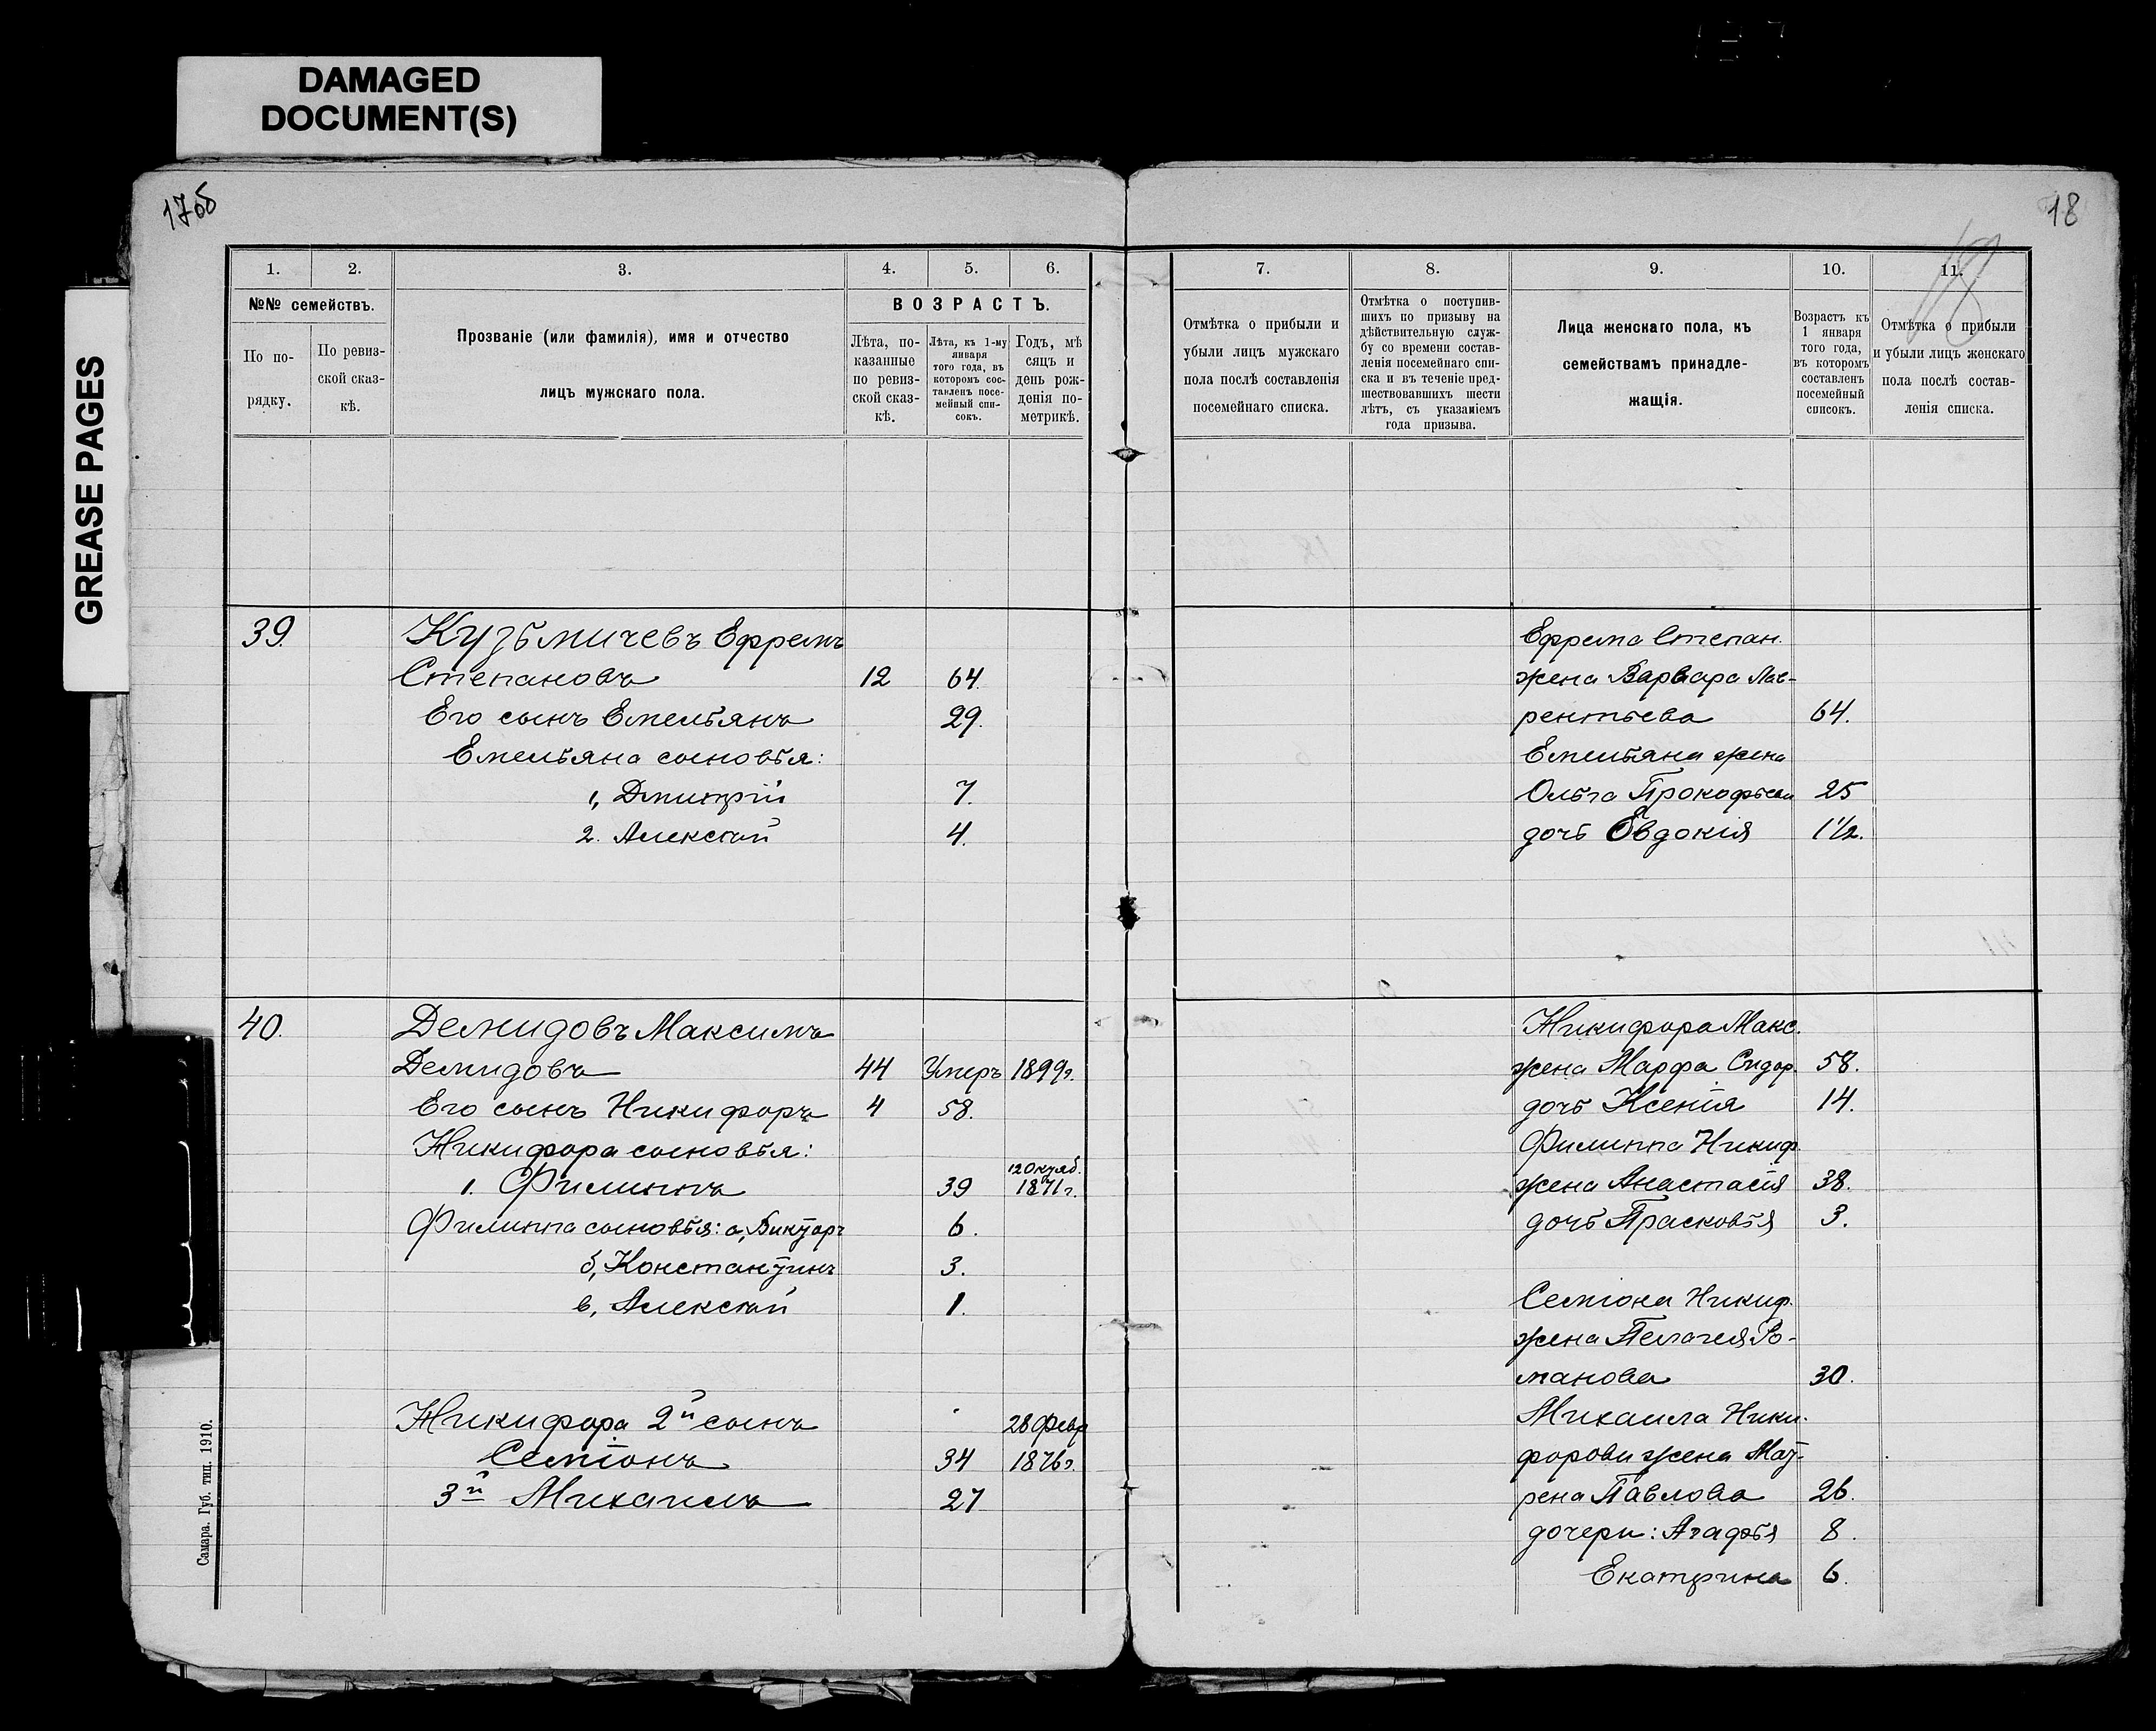 DAMAGED
DOCUMENT(S)
GREASE PAGES
17об
18
1.
2.
3.
4.
5.
6.
№№ семействъ.
По по-
рядку.
По ревиз-
ской сказ-
кѣ.
Прозваніе (или фамилія), имя и отчество
лицъ мужскаго пола.
ВОЗРАСТЪ.
Лѣта, по-
казанные
по ревиз-
ской сказ-
кѣ.
Лѣта, къ 1-му
января
того года, въ
которомъ сос-
тавленъ посе-
мейный спи-
сокъ.
Годъ, мѣ
сяцъ и
день рож-
денія по-
метрикѣ.
39.
Кузьмичевъ Ефремъ
Степановъ 12 64.
Его сынъ Емельянъ 29.
Емельяна сыновья:
1, Дмитрій 7.
2. Алексѣй 4.
40.
Демидовъ Максимъ
Демидовъ 44 Умеръ 1899г.
Его сынъ Никифоръ 4 58.
Никифора сыновья:
12 Октяб.
1. Филиппъ 39 1871г.
Филиппа сыновья: а, Викторъ 6.
б, Константинъ 3.
в, Алексѣй 1.
Никифора 2й сынъ 28 Февр
Семіонъ 34 1876г.
3й Михаилъ 27
Самара. Губ. тип. 1910.
7.
8.
9.
10.
11.
18
Отмѣтка о прибыли и
убыли лицъ мужскаго
пола послѣ составленія
посемейнаго списка.
Отмѣтка о поступив-
шихъ по призыву на
дѣйствительную служ-
бу со времени состав-
ленія посемейнаго спи-
ска и въ теченіе пред-
шествовавшихъ шести
лѣтъ, съ указаніемъ
года призыва.
Лица женскаго пола, къ
семействамъ принадле-
жащія.
Возрастъ къ
1 января
того года,
въ которомъ
составленъ
посемейный
списокъ.
Отмѣтка о прибыли
и убыли лицъ женскаго
пола послѣ состав-
ленія списка.
Ефрема Степан.
жена Варвара Лав-
рентьева 64.
Емельяна жена
Ольга Прокофьева 25
дочь Евдокія 1½.
Никифора Макс.
жена Марфа Сидор. 58.
дочь Ксенія 14.
Филиппа Никиф.
жена Анастасія 38.
дочь Прасковья 3.
Семіона Никиф.
жена Пелагея Ро-
манова 30.
Михаила Ники-
форова жена Мат-
рена Павлова 26.
дочери: Агафья 8.
Екатрина 6.